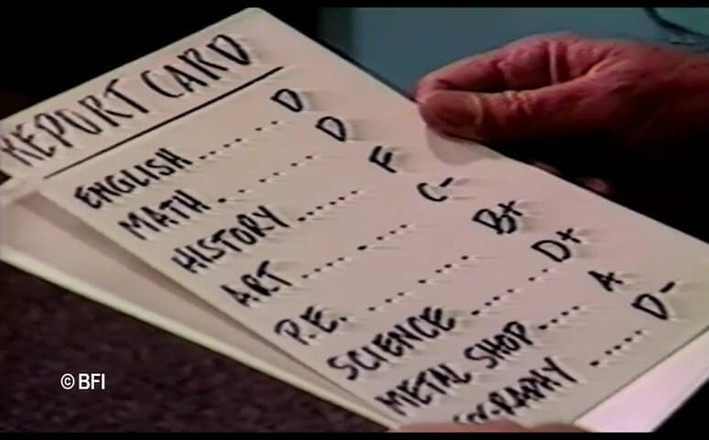 REPORT CARD
ENGLISH........ D
MATH......... D
HISTORY...... F
ART...... ..... C-
P.E. ... ....... B+
SCIENCE ....... D+
METAL SHOP .... A
..... D-
© BFI